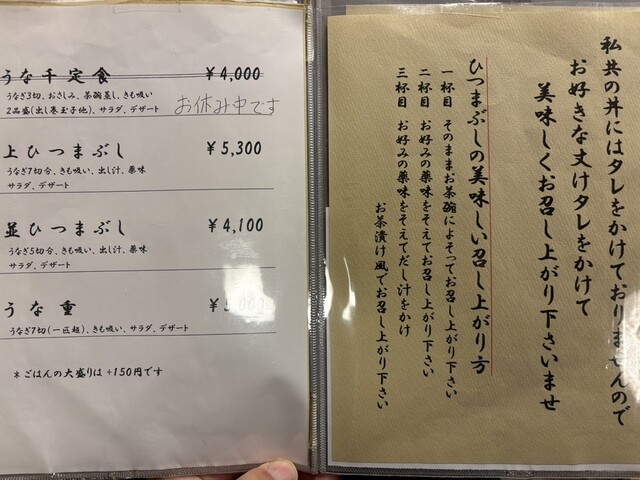 うな千定食 ￥4,000
うなぎ3切、おさしみ、茶碗蒸し、きも吸い
2品盛(出し巻玉子他)、サラダ、デザート
お休み中です
上ひつまぶし ￥5,300
うなぎ7切分、きも吸い、出し汁、薬味
サラダ、デザート
並ひつまぶし ￥4,100
うなぎ5切分、きも吸い、出し汁、薬味
サラダ、デザート
うな重 ￥5,000
うなぎ7切(一匹超)、きも吸い、サラダ、デザート
＊ごはんの大盛りは+150円です
私共の丼にはタレをかけておりませんので
お好きな丈けタレをかけて
美味しくお召し上がり下さいませ
ひつまぶしの美味しい召し上がり方
一杯目 そのままお茶碗によそってお召し上がり下さい
二杯目 お好みの薬味をそえてお召し上がり下さい
三杯目 お好みの薬味をそえてだし汁をかけ
お茶漬け風でお召し上がり下さい